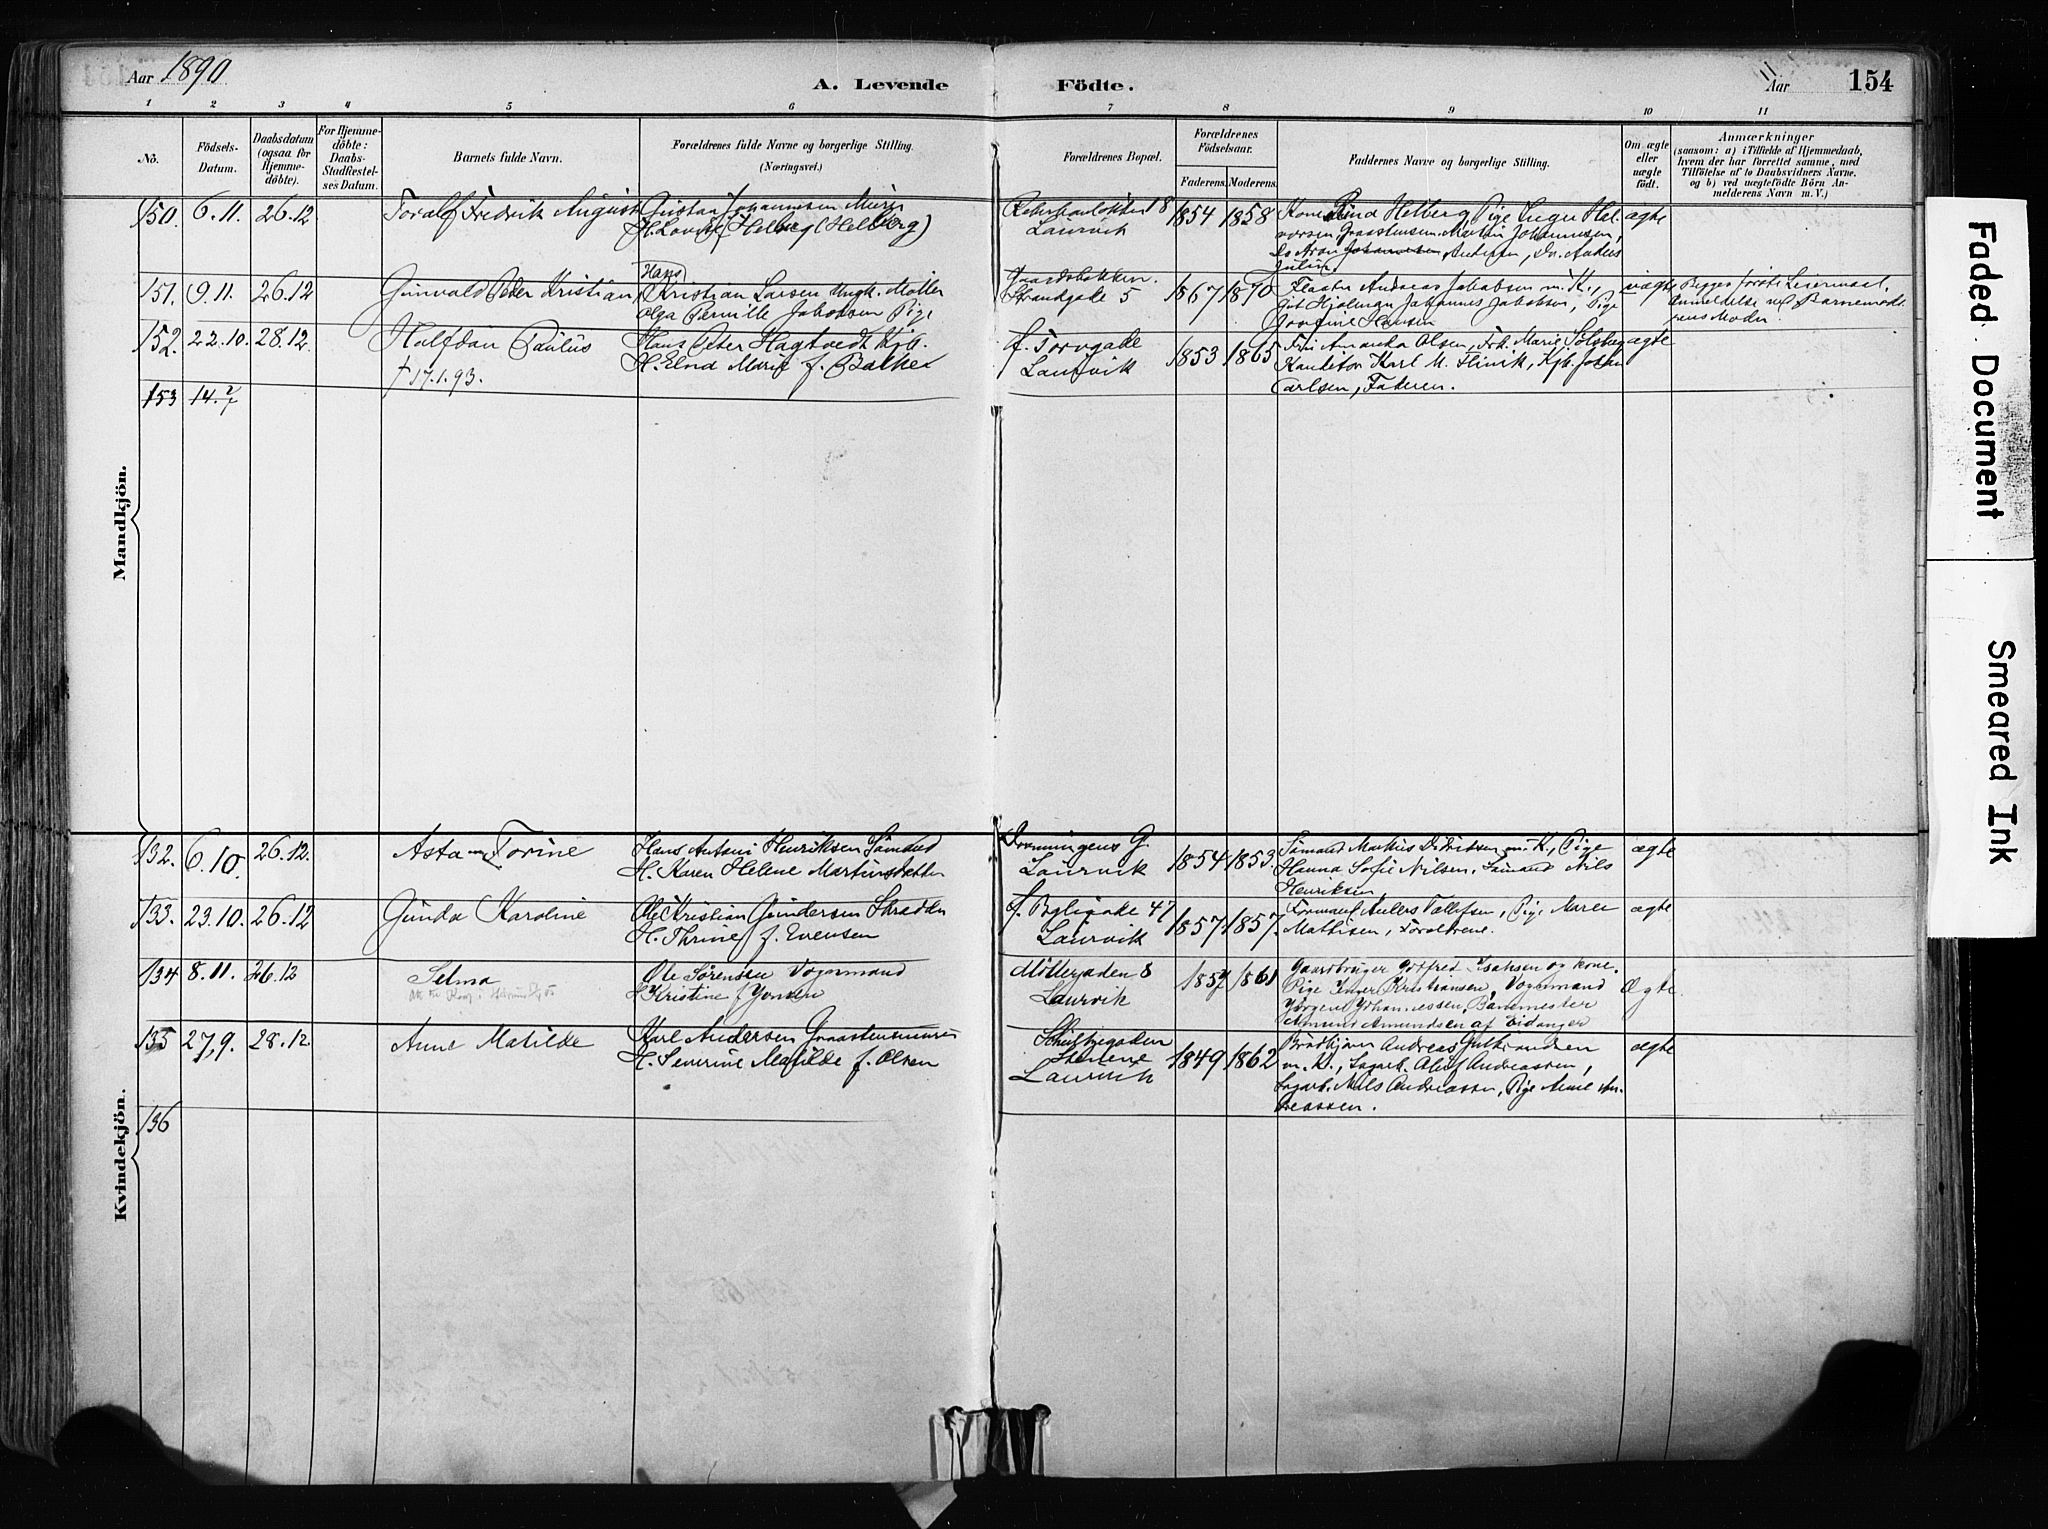 Aar 1890
A. Levende Födte.
11
Aar
154
1 2 3 4 5 6 7 8 9 10 11
No.
Födsels-
Datum.
Daabsdatum
(ogsaa for
Hjemme-
döbte).
For Hjemme-
döbte:
Daabs-
Stadfæstel-
ses Datum.
Barnets fulde Navn.
Forældrenes fulde Navne og borgerlige Stilling.
(Næringsvei.)
Forældrenes Bopæl.
Forældrenes
Födselsaar.
Faderens. Moderens.
Faddernes Navne og borgerlige Stilling.
Om ægte
eller
uægte
födt.
Anmærkninger
(saasom: a) i Tilfælde af Hjemmedaab,
hvem der har forrettet samme, med
Tilföielse af to Daabsvidners Navne,
og b) ved uægtefödte Börn An-
melderens Navn m. V.)
Mandkjön.
150. 6.11. 26.12 Toralf Fredrik August
Gustav Johannesen Murer
H. Lovise Helberg (Helberg)
8
Laurvik
1854 1858
Kone Helberg, Pige Inger Hal-
vorsen, Graastensm. Martin Johannesen,
Johannesen Andersen,
Julius
ægte
151. 9.11. 26.12 Gunvald Peder Kristian
Hans
Kristian Larsen Ungk. Møller
Olga Pernille Jakobsen Pige
Strandgade 5
1867 1870
Andreas Jakobsen m. K.,
Hjalmar Johannes Jakobsen, Pige
Josefine Hansen
uægte
Begges første Leiermaal,
Anmeldelse ved Barnemod-
rens Moder.
152. 22.10. 28.12. Halfdan Paulus
† 17.1.93.
Hans Peder Hagtvedt Kjb.
H. Elna Marie f. Balke
f. Torvgade
Laurvik
1853 1865
Fru Amanda Olsen, Frk. Marie Solberg
Konditor Karl M. Flinik, Kjb. Johan
Carlsen, Faderen.
ægte
153 14. 2/7
Kvindekjön.
132. 6.10. 26.12. Asta Torine
Hans Antoni Henriksen Sømand
H. Karen Helene Martinsdatter
Dronningens G.
Laurvik
1854 1853.
Sømand Markus Didriksen m. K., Pige
Hanna Sofie Nilsen, Sømand Nils
Henriksen
ægte
133. 23.10. 26.12 Gunda Karoline
Ole Kristian Gundersen Skrædder
H. Thrine f. Evensen
47
Laurvik
1857 1857.
Formand Anders Tollefsen, Pige Maren
Mathisen, Forældrene.
ægte
134 8.11. 26.12 Selma
Ole Sørensen Vognmand
H. Kristine f. Jonsen
Møllergaden 8
Laurvik
1857 1861
Gaardbruger Gotfred Isaksen og kone.
Pige Inger Kristiansen, Vognmand
Jørgen Johannessen, Banemester
Amund Amundsen af Eidanger
Ægte.
135 27,9. 28.12. Anne Matilde
Karl Andersen Graastensmurer
H. Severine Matilde f. Olsen
Schultzegaden
Stenene
Laurvik
1849 1862
Brødkjører Andreas Gulbrandsen
m. K., Sagarb. Oluf Andreassen,
Sagarb. Nils Andreassen, Pige Anne An-
dreassen.
ægte
136
Faded Document
Smeared Ink